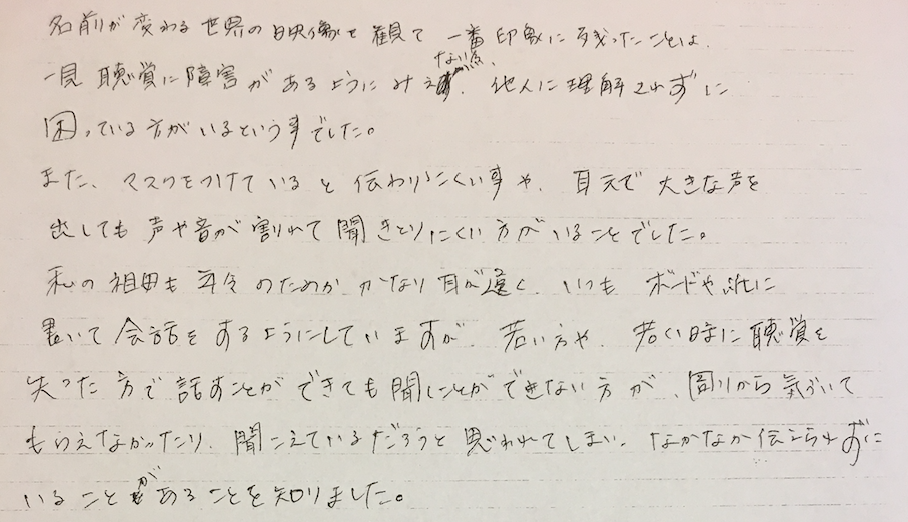 名前が変わる世界の映像を観て 一番印象に残ったことは、
一見 聴覚に障害があるようにみえない為、他人に理解されずに
困っている方がいるという事でした。
また、マスクをつけていると伝わりにくい事や、耳元で大きな声を
出しても声や音が割れて聞きとりにくい方がいることでした。
私の祖母も年令のためか かなり耳が遠く、いつも ボードや紙に
書いて会話をするようにしていますが、若い方や、若い時に聴覚を
失った方で話すことができても聞くことができない方が、周りから気づいて
もらえなかったり、聞こえているだろうと思われてしまい、なかなか伝えられずに
いることがあることを知りました。